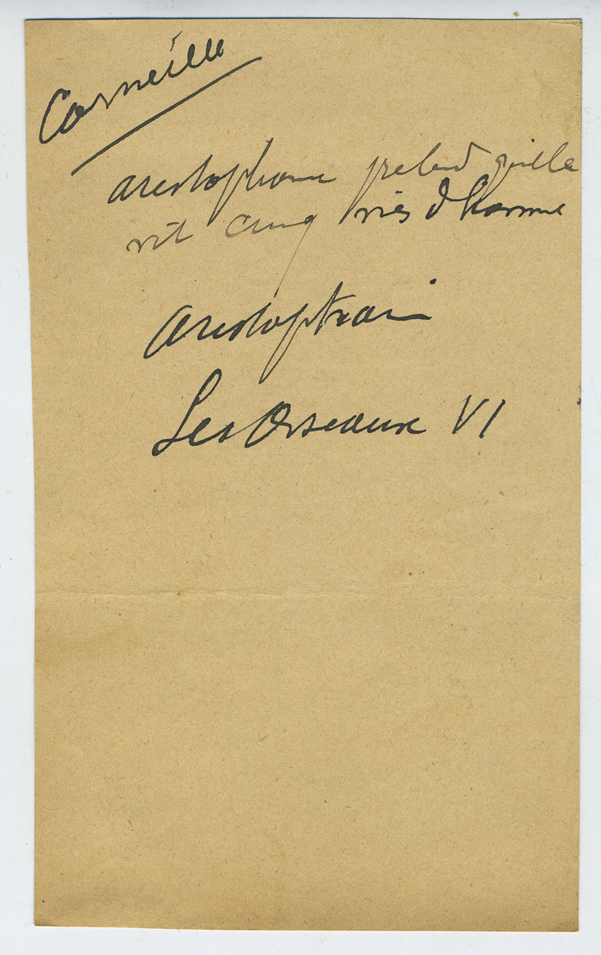 Corneille
aristophane pretend qu'elle
vit cinq vies d'homme
aristophane
Les Oiseaux VI